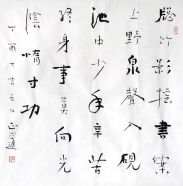 牕竹影搖書案
上野泉聲入硯
池中少年辛苦
終身事莫向光
陰惰寸功